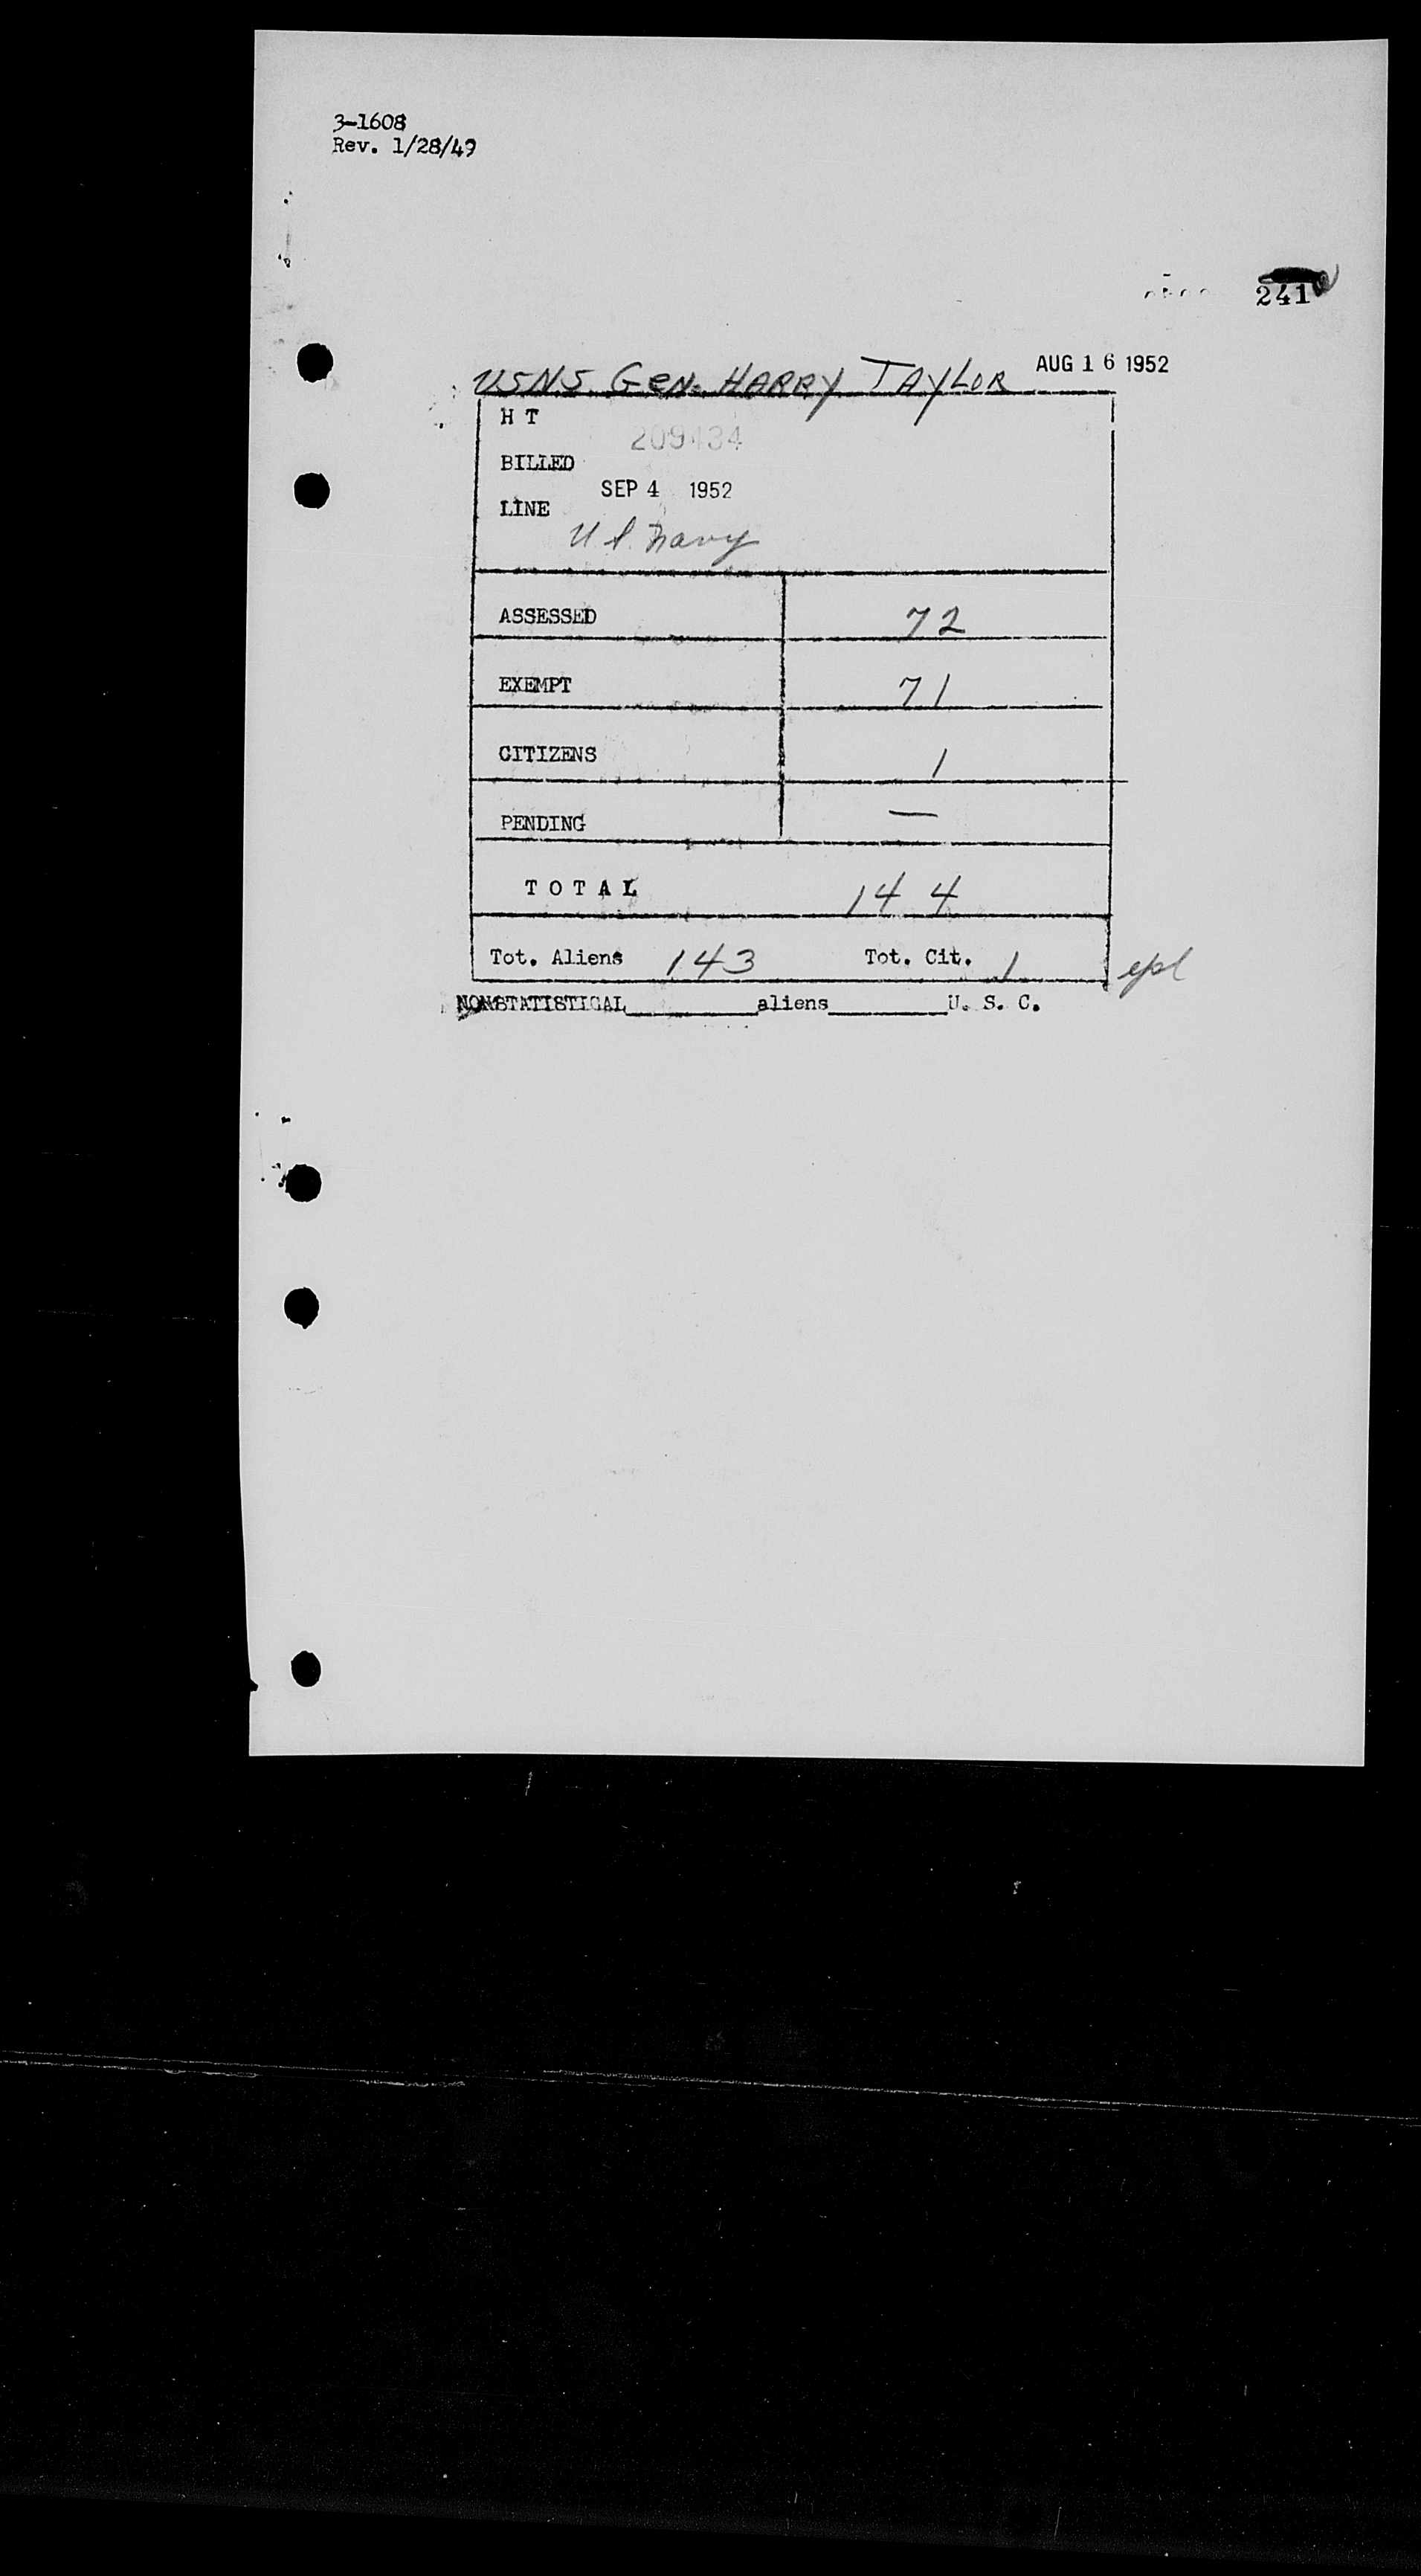 3-1608
Rev. 1/28/49
241
USNS. GEN. HARRY TAYLOR AUG 16 1952
H T
BILLED
SEP 4 1952
LINE
U S. Navy
ASSESSED 72
EXEMPT 71
CITIZENS 1
PENDING —
TOTAL 144
Tot. Aliens 143 Tot. Cit. 1
NONSTATISTICAL________aliens________U. S. C.